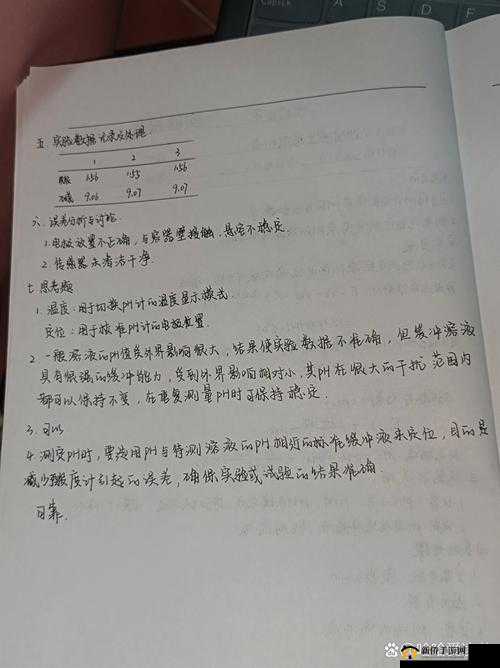 CapsLock A S D
五. 实验数据记录及处理
1 2 3
1.56 1.55 1.56
9.06 9.07 9.07
六. 误差分析与讨论
1. 电极放置不正确,与容器壁接触,悬空不稳定.
2. 传感器未清洁干净.
七 思考题
1. 温度:用于切换pH计的温度显示模式
定位:用于校准pH计的电极位置.
2. 一般溶液的pH值受外界影响很大,结果使实验数据不准确,但缓冲溶液
具有很强的缓冲能力,受到外界影响相对小,其pH在很大的干扰范围内
都可以保持不变,在重复测量pH时可保持稳定.
3. 可以
4. 测定pH时,要选用pH与待测溶液的pH相近的标准缓冲液来定位,目的是
减少酸度计引起的误差,确保实验或试验的结果准确.
可靠.
新侨手游网